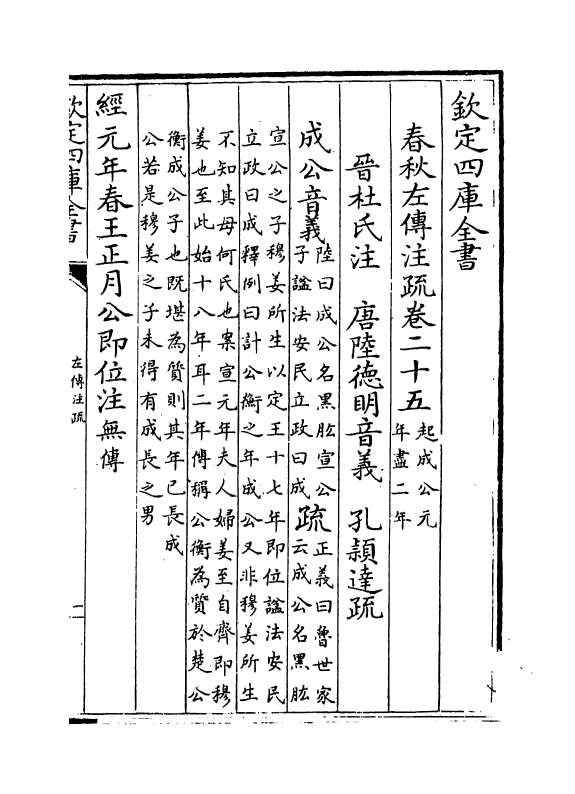 欽定四庫全書
春秋左傳注疏卷二十五
起成公元
年盡二年
晉杜氏注　唐陸德明音義　孔穎達疏
成公音義
陸曰成公名黑肱宣公
子諡法安民立政曰成
疏
正義曰魯世家
云成公名黑肱
宣公之子穆姜所生以定王十七年即位諡法安民
立政曰成釋例曰計公衡之年成公又非穆姜所生
不知其母何氏也案宣元年夫人婦姜至自齊即穆
姜也至此始十八年耳二年傳稱公衡為質於楚公
衡成公子也既堪為質則其年已長成
公若是穆姜之子未得有成長之男
經元年春王正月公即位注無傳
欽定四庫全書
左傳注疏